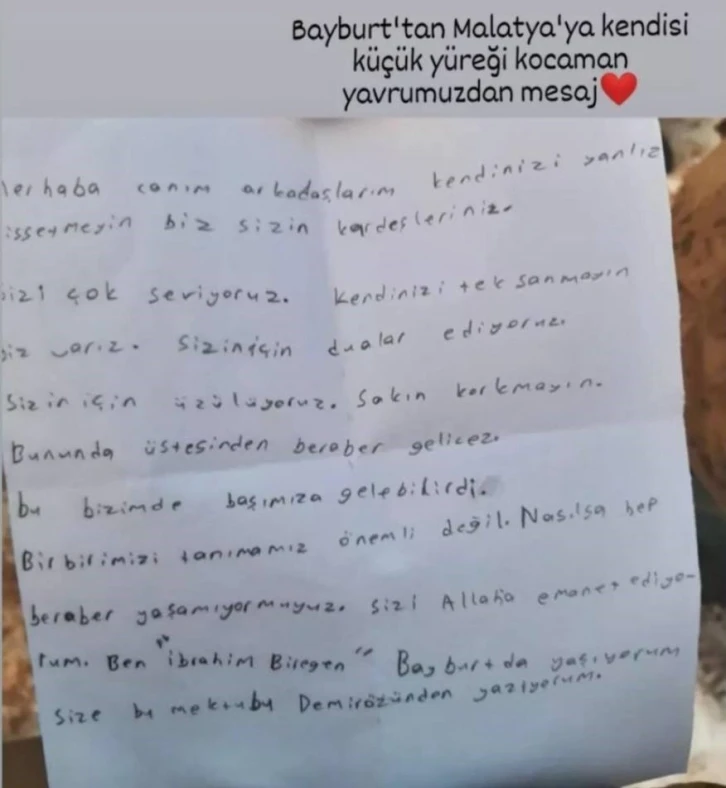 Bayburt'tan Malatya'ya kendisi
küçük yüreği kocaman
yavrumuzdan mesaj❤️
lerhaba canım arkadaşlarım kendinizi yanlız
issetmeyin biz sizin kardeşleriniz.
izi çok seviyoruz. Kendinizi tek sanmayın
iz varız. Siziniçin dualar ediyoruz.
Sizin için üzülüyoruz. Sakın korkmayın.
Bununda üstesinden beraber gelicez.
bu bizimde başımıza gelebilirdi.
Birbirimizi tanımamız önemli değil. Nasılsa hep
beraber yaşamıyormuyuz. Sizi Allaha emanet ediyo-
rum. Ben "İbrahim Biregen" Bayburtda yaşıyorum
Size bu mektubu Demirözünden yazıyorum.